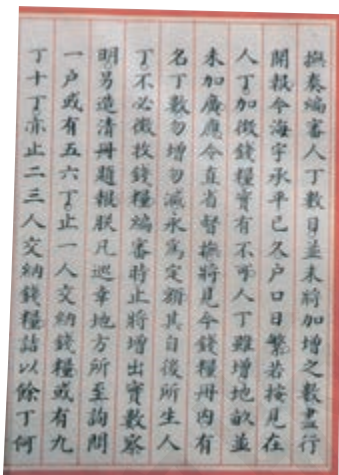 撫奏編審人丁數目並未將加增之數盡行
開報今海宇承平已久户口日繁若按見在
人丁加徵錢糧實有不可人丁雖增地畝並
未加廣應令直省督撫將見今錢糧冊內有
名丁數勿增勿減永爲定額其自後所生人
丁不必徵收錢糧編審時止將增出實數察
明另造清冊題報朕凡巡幸地方所至詢問
一户或有五六丁止一人交納錢糧或有九
丁十丁亦止二三人交納錢糧詰以餘丁何